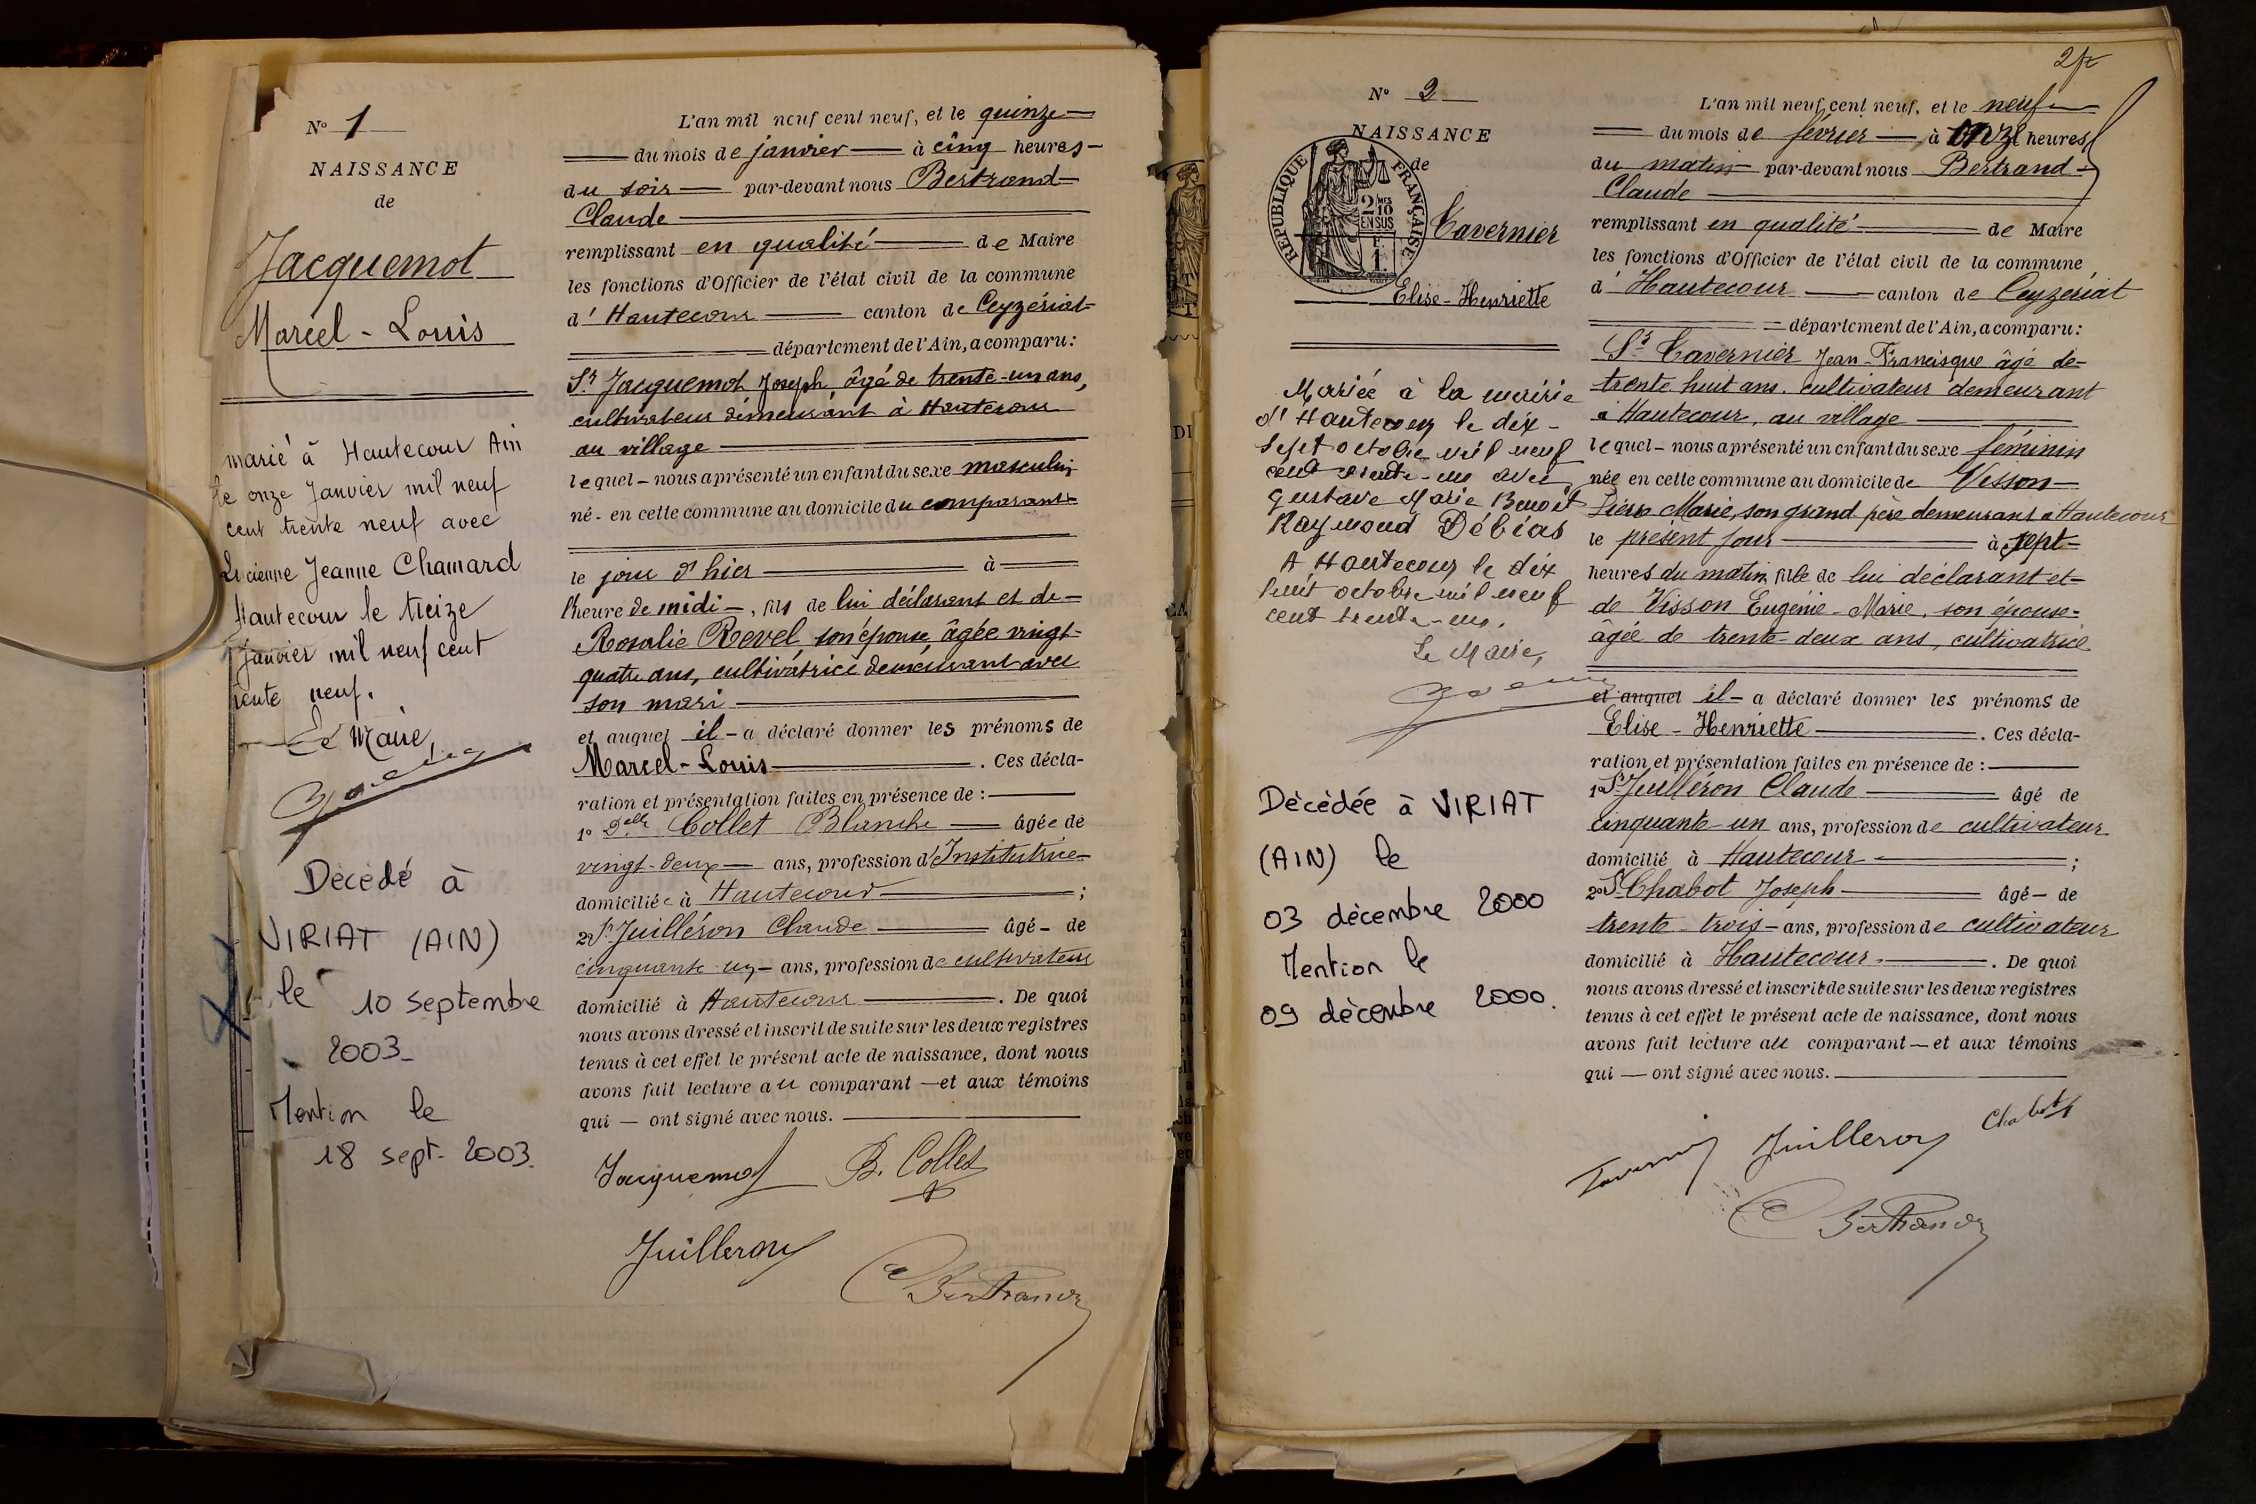 N° 1
NAISSANCE
de
Jacquemot
Marcel - Louis
marié à Hautecour Ain
le onze Janvier mil neuf
cent trente neuf avec
Lucienne Jeanne Chamard
Hautecour le treize
Janvier mil neuf cent
trente neuf.
Le Maire,
Décédé à
VIRIAT (AIN)
le 10 septembre
2003
Mention le
18 sept. 2003.
L'an mil neuf cent neuf, et le quinze
du mois de janvier à cinq heures
du soir par-devant nous Bertrand
Claude
remplissant en qualité de Maire
les fonctions d'Officier de l'état civil de la commune
d'Hautecour canton de Ceyzériat
département de l'Ain, a comparu:
Sr Jacquemot Joseph âgé de trente-un ans,
cultivateur demeurant à Hautecour
au village
lequel nous a présenté un enfant du sexe masculin
né en cette commune au domicile du comparant
le jour d'hier à
l'heure de midi, fils de lui déclarant et de
Rosalie Revel son épouse, âgée vingt-
quatre ans, cultivatrice demeurant avec
son mari
et auquel il a déclaré donner les prénoms de
Marcel-Louis. Ces décla-
ration et présentation faites en présence de:
1° Delle Collet Blanche âgée de
vingt-deux ans, profession d'Institutrice
domiciliée à Hautecour;
2° Sr Juilléron Claude âgé de
cinquante un ans, profession de cultivateur
domicilié à Hautecour. De quoi
nous avons dressé et inscrit de suite sur les deux registres
tenus à cet effet le présent acte de naissance, dont nous
avons fait lecture au comparant et aux témoins
qui ont signé avec nous.
Jacquemot B. Collet
Juilleron
C Bertrand
2 fr
N° 2
NAISSANCE
de
REPUBLIQUE FRANÇAISE
2/10 EN SUS
Tavernier
Elise-Henriette
Mariée à la mairie
d'Hautecour le dix-
sept octobre mil neuf
cent trente-un avec
Gustave Marie Benoît
Raymond Débias
A Hautecour le dix
huit octobre mil neuf
cent trente-un.
Le Maire,
Décédée à VIRIAT
(AIN) le
03 décembre 2000
Mention le
09 décembre 2000.
L'an mil neuf cent neuf, et le neuf
du mois de février à onze heures
du matin par-devant nous Bertrand
Claude
remplissant en qualité de Maire
les fonctions d'Officier de l'état civil de la commune
d'Hautecour canton de Ceyzériat
département de l'Ain, a comparu:
Sr Tavernier Jean-Francisque âgé de
trente huit ans. cultivateur demeurant
à Hautecour, au village
lequel nous a présenté un enfant du sexe féminin
née en cette commune au domicile de Visson
Pierre Marie, son grand père demeurant à Hautecour
le présent jour à sept
heures du matin, fille de lui déclarant et
de Visson Eugénie-Marie, son épouse
âgée de trente-deux ans, cultivatrice
et auquel il a déclaré donner les prénoms de
Elise-Henriette. Ces décla-
ration et présentation faites en présence de:
1° Sr Juilléron Claude âgé de
cinquante-un ans, profession de cultivateur
domicilié à Hautecour;
2° Sr Chabot Joseph âgé de
trente-trois ans, profession de cultivateur
domicilié à Hautecour. De quoi
nous avons dressé et inscrit de suite sur les deux registres
tenus à cet effet le présent acte de naissance, dont nous
avons fait lecture au comparant et aux témoins
qui ont signé avec nous.
Tavernier Juilleron Chabot
C Bertrand